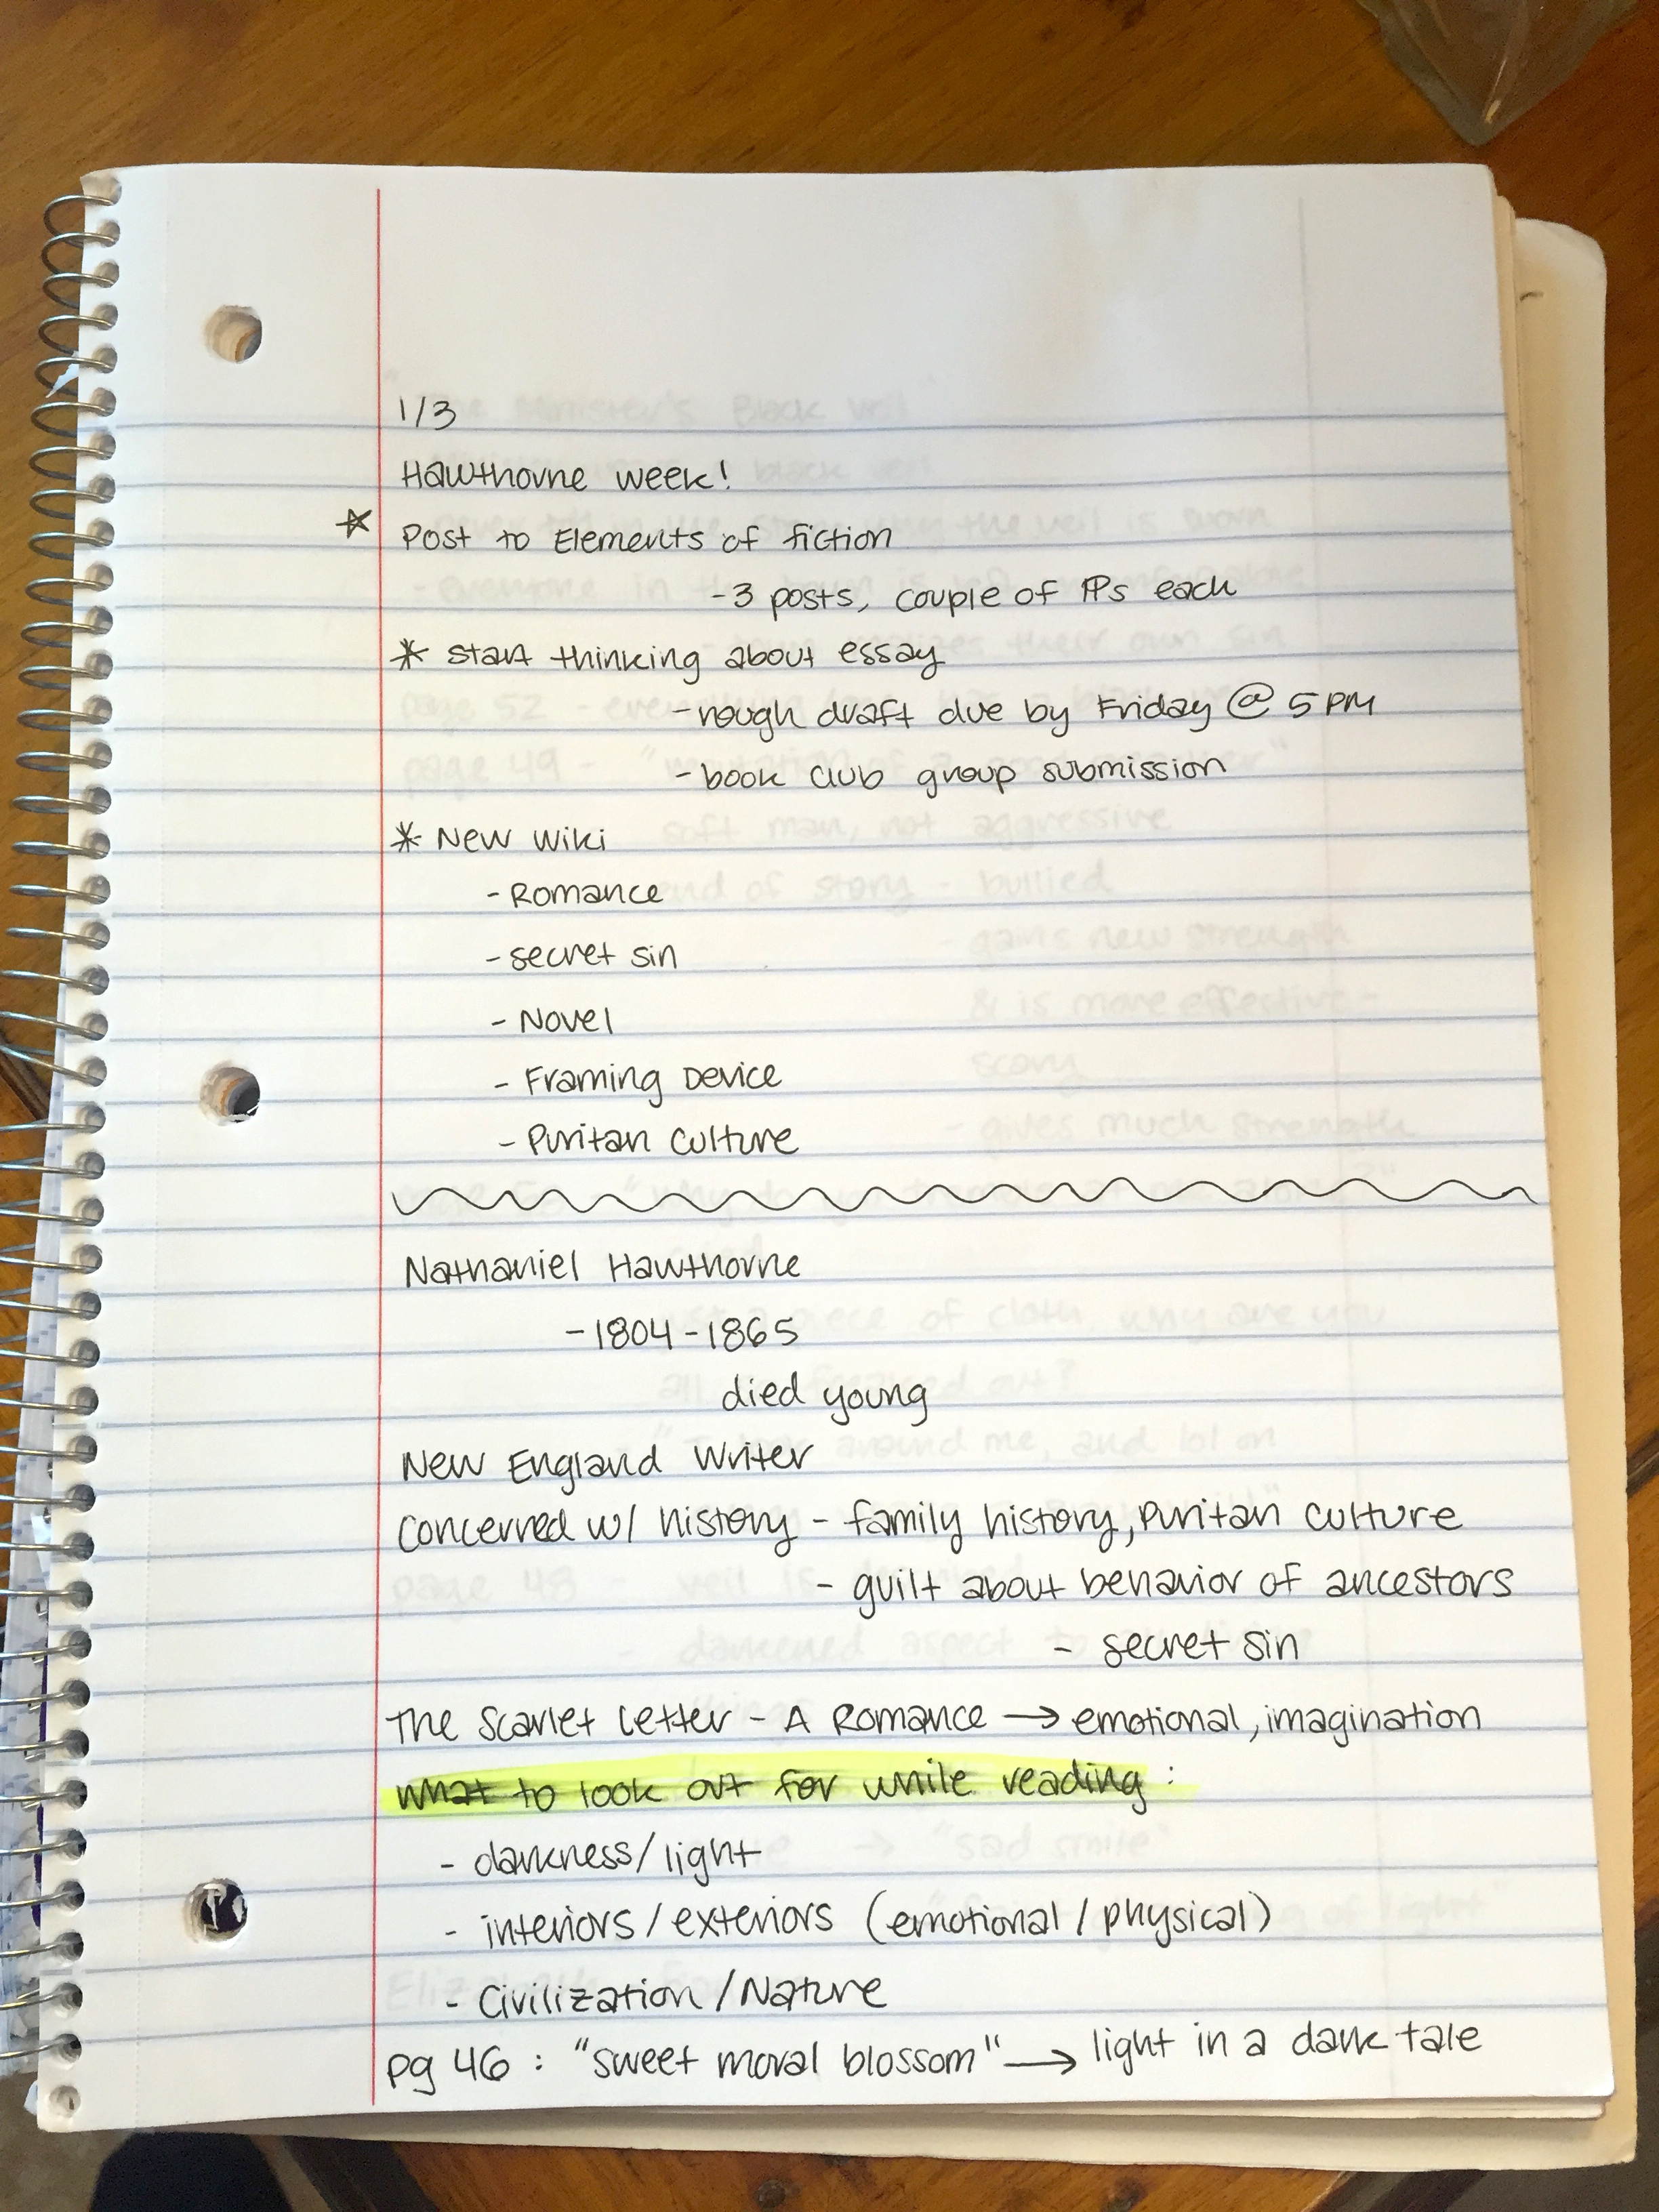 1/3
Hawthorne week!
☆ Post to Elements of fiction
-3 posts, couple of ¶s each
* start thinking about essay
-rough draft due by Friday @ 5 PM
-book club group submission
* New Wiki
- Romance
- secret sin
- Novel
- Framing Device
- Puritan Culture
Nathaniel Hawthorne
-1804-1865
died young
New England Writer
Concerned w/ history - family history, Puritan Culture
- guilt about behavior of ancestors
- secret sin
The Scarlet Letter - A Romance → emotional, imagination
what to look out for while reading:
- darkness/light
- interiors/exteriors (emotional/physical)
- Civilization/Nature
pg 46: "sweet moral blossom" → light in a dark tale